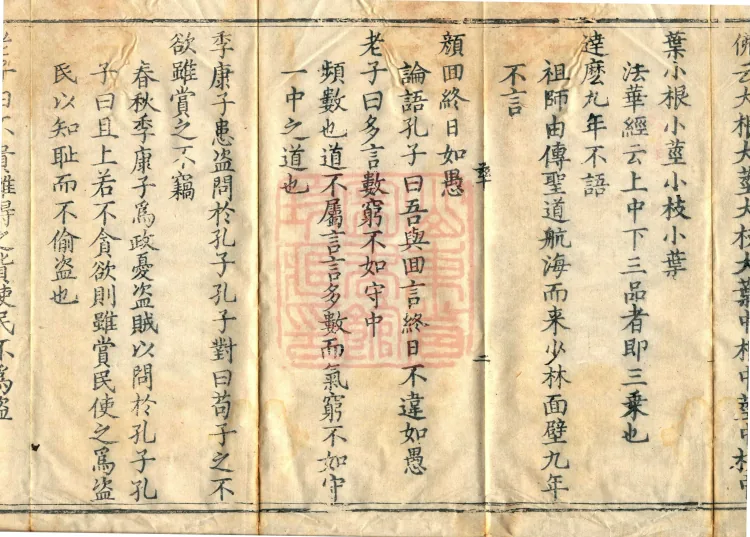 云大根大莖大枝大葉中根中莖中枝中
葉小根小莖小枝小葉
法華經云上中下三品者即三乗也
達麼九年不語
祖師由傳聖道航海而来少林面壁九年
不言
二
顔囬終日如愚
論語孔子曰吾與囬言終日不違如愚
老子曰多言數窮不如守中
頻數也道不屬言言多數而氣窮不如守
一中之道也
季康子患盗問於孔子孔子對曰苟子之不
欲雖賞之不竊
春秋季康子爲政憂盗賊以問於孔子孔
子曰且上若不貪欲則雖賞民使之爲盗
民以知耻而不偷盗也
老子曰不貴難得之貨使民不爲盗